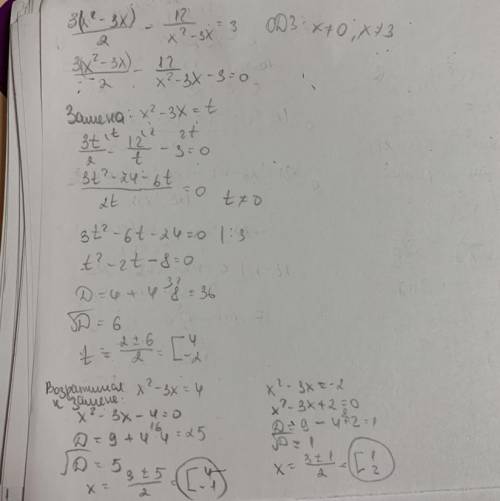 3(x²-3x)/2 - 12/(x²-3x) = 3   ОДЗ: x≠0, x≠3
3(x²-3x)/2 - 12/(x²-3x) - 3 = 0
Замена: x²-3x=t
3t/2 - 12/t - 3 = 0
(3t²-24-6t)/2t = 0   t≠0
3t²-6t-24=0 |:3
t²-2t-8=0
D=4+4·8=36
√D=6
t = (2±6)/2 = [4 -2
Возвратимся к замене: x²-3x=4
x²-3x-4=0
D=9+4·4=25
√D=5
x = (3±5)/2 = [4 -1
x²-3x=-2
x²-3x+2=0
D=9-4·2=1
√D=1
x = (3±1)/2 = [1 2